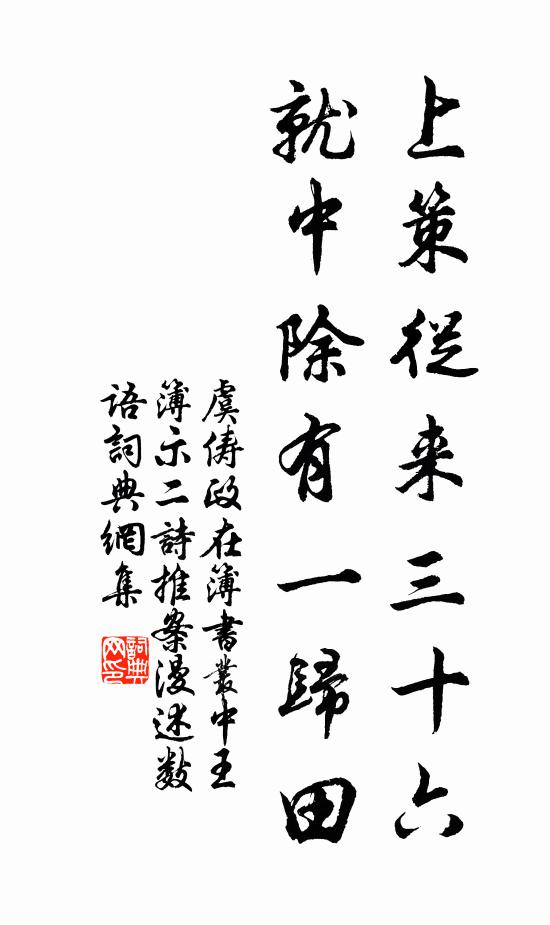 上策從来三十六
就中除有一歸田
虞俦政在簿書叢中王
簿示二詩推案漫述数
语詞典網集
詞典网印